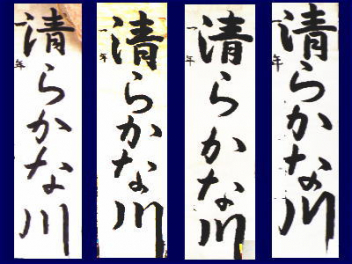 清らかな川
一年
清らかな川
年
清らかな川
一年
清らかな川
一年